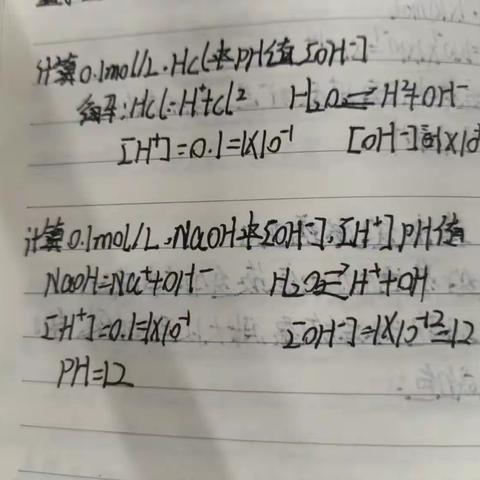 计算0.1mol/L.HCl求PH值[OH⁻]
解:HCl=H⁺+Cl² H₂O⇌H²+OH⁻
[H⁺]=0.1=1X10⁻¹ [OH⁻] 1X10
计算0.1mol/L.NaOH求[OH⁻].[H⁺]PH值
NaOH=Na⁺+OH⁻ H₂O⇌H⁺+OH
[H⁺]=0.1=1X10⁻¹ [OH⁻]=1X10⁻¹²=12
PH=12